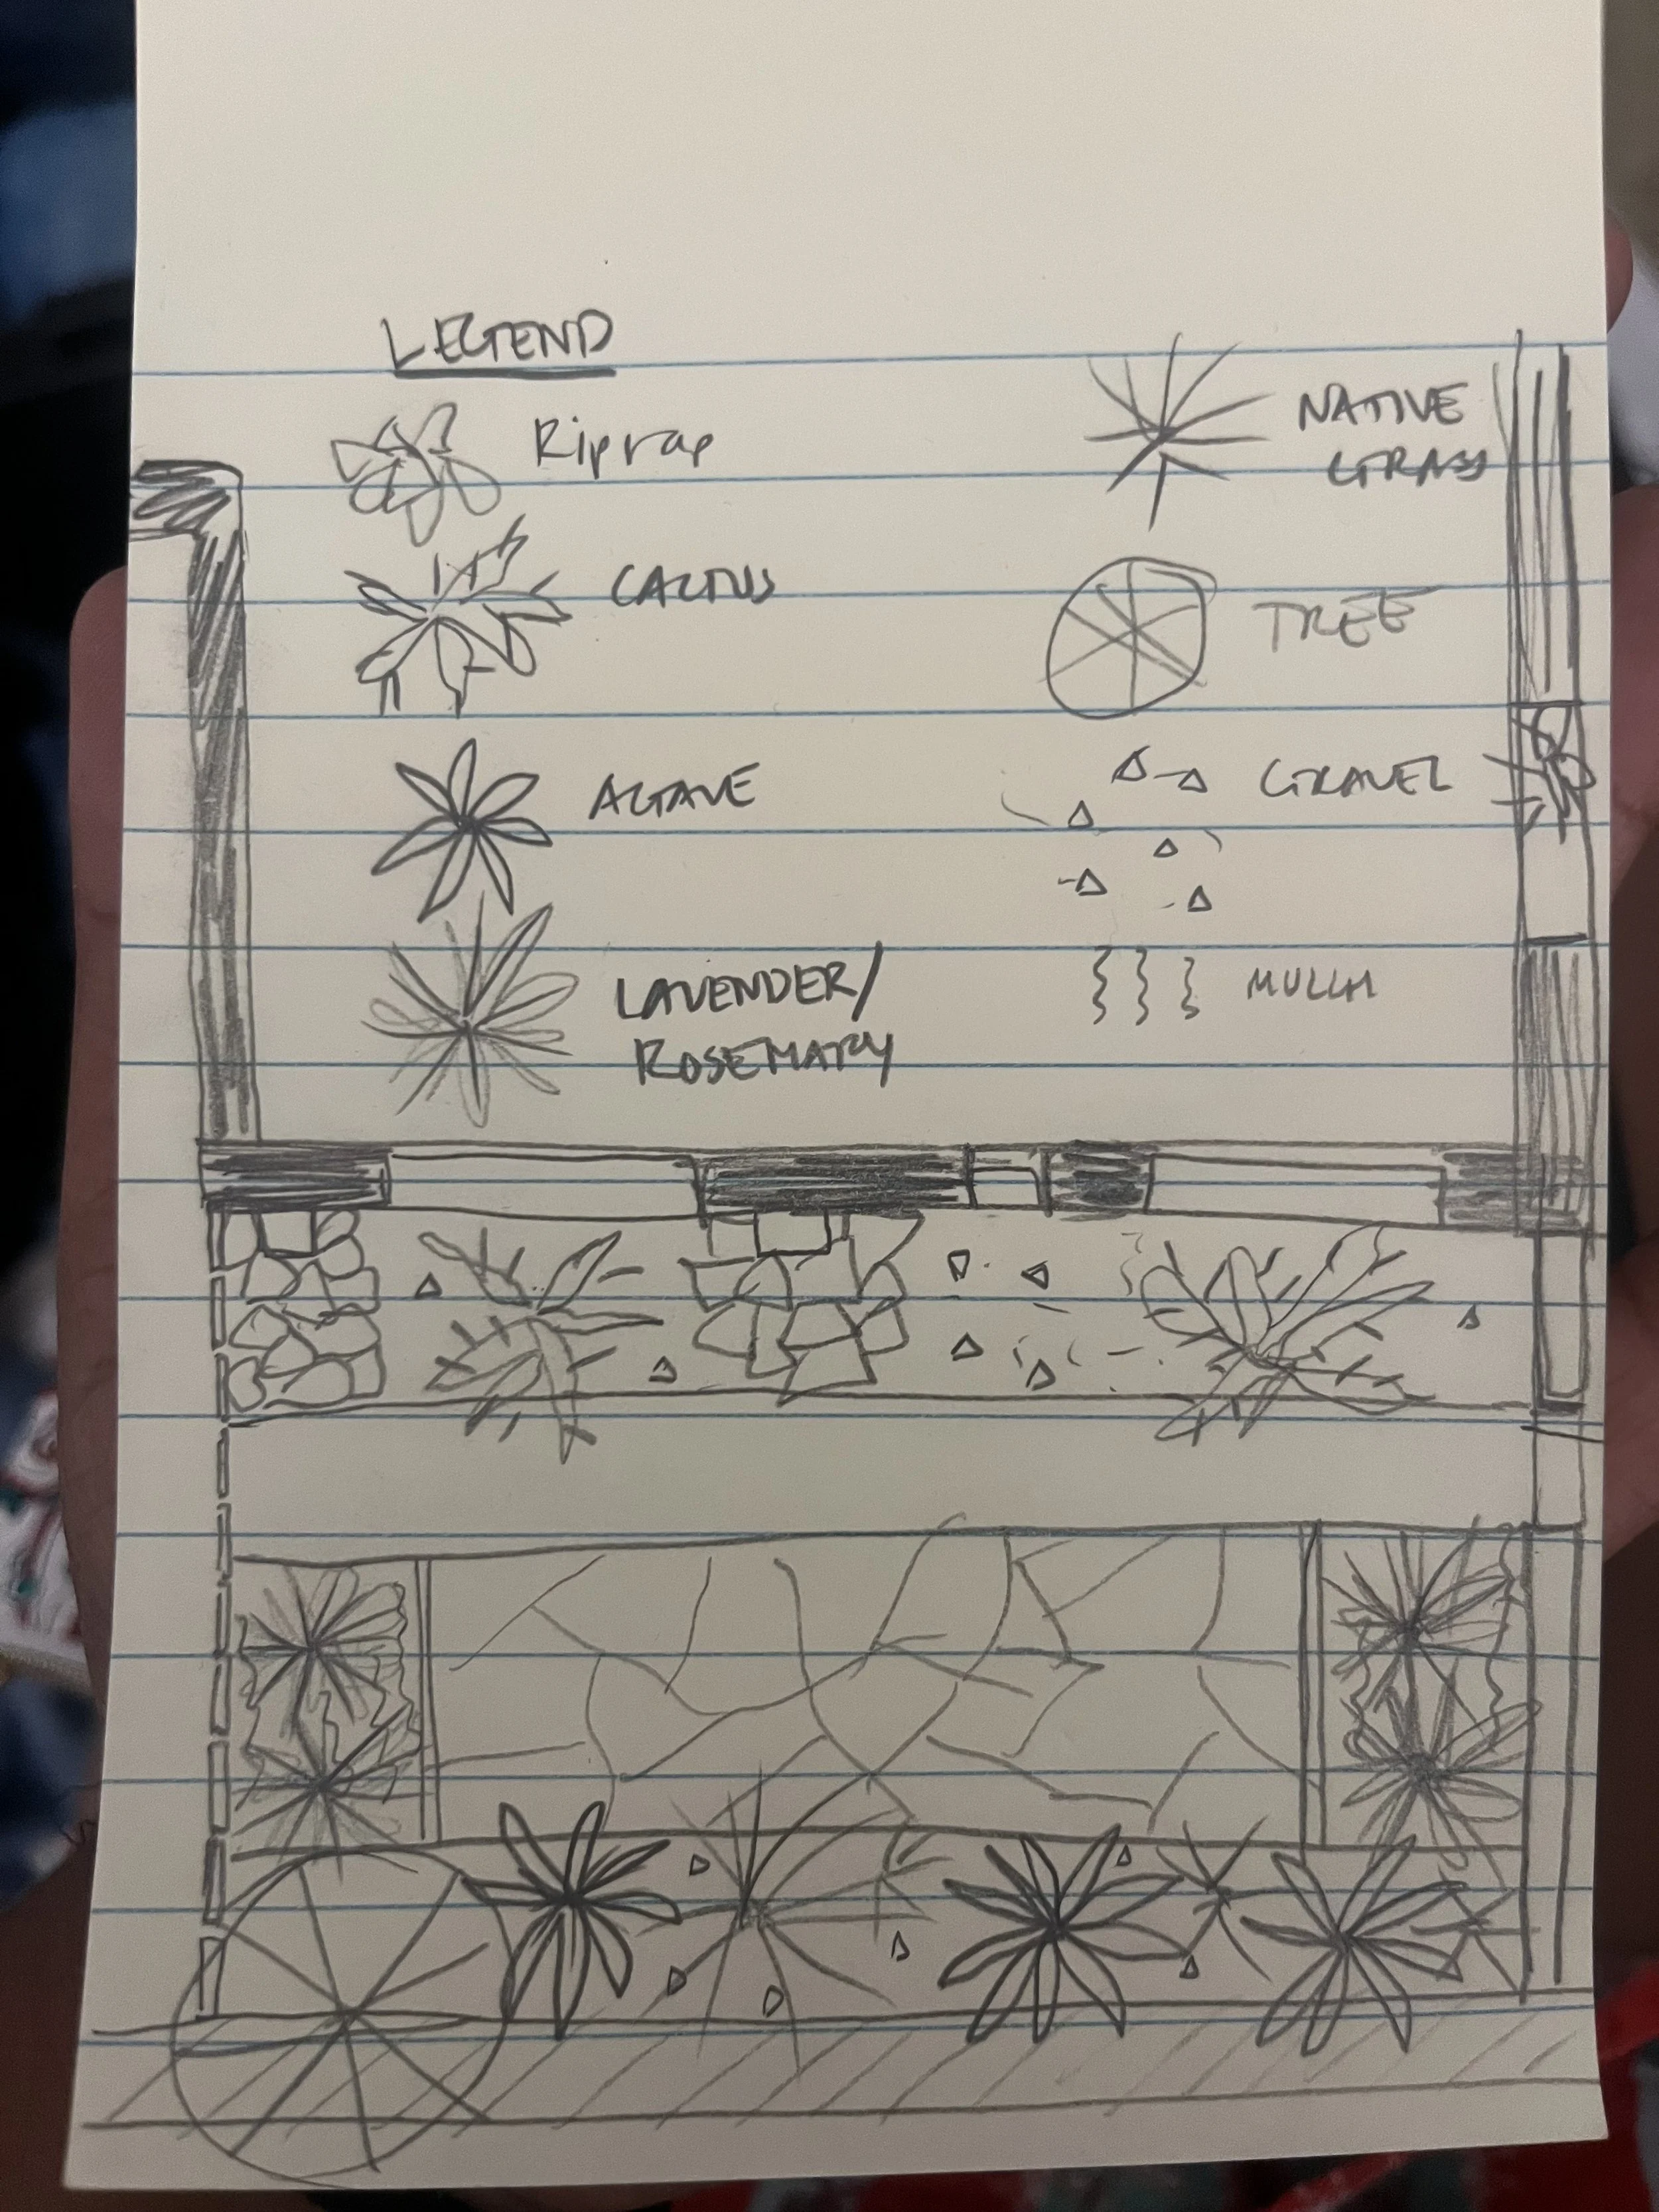 LEGEND
Riprap
CACTUS
AGAVE
LAVENDER/
ROSEMARY
NATIVE
GRASS
TREE
GRAVEL
MULCH